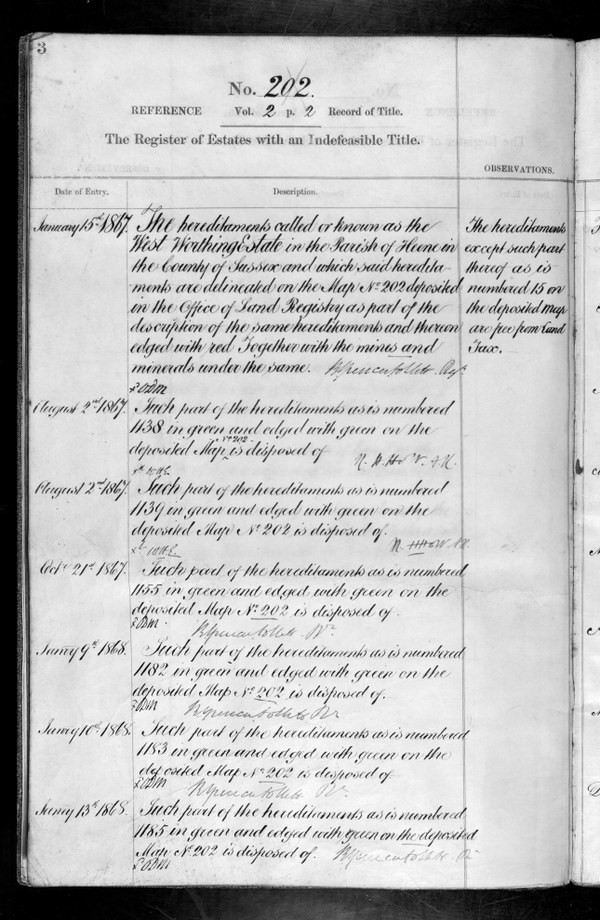 3
No. 202.
REFERENCE Vol. 2 p. 2 Record of Title.
The Register of Estates with an Indefeasible Title.
OBSERVATIONS.
Date of Entry.
Description.
January 15th 1867.
The hereditaments called or known as the
West Worthing Estate in the Parish of Heene in
the County of Sussex and which said heredita-
ments are delineated on the Map No 202 deposited
in the Office of Land Registry as part of the
description of the same hereditaments and thereon
edged with red Together with the mines and
minerals under the same.
The hereditaments
except such part
thereof as is
numbered 15 on
the deposited Map
are free from Land
Tax.
August 2nd 1867.
Such part of the hereditaments as is numbered
1138 in green and edged with green on the
deposited Map No 202 is disposed of
August 2nd 1867.
Such part of the hereditaments as is numbered
1139 in green and edged with green on the
deposited Map No 202 is disposed of.
Octr 21st 1867.
Such part of the hereditaments as is numbered
1155 in green and edged with green on the
deposited Map No 202 is disposed of.
Janry 9th 1868.
Such part of the hereditaments as is numbered
1182 in green and edged with green on the
deposited Map No 202 is disposed of.
Janry 10th 1868.
Such part of the hereditaments as is numbered
1183 in green and edged with green on the
deposited Map No 202 is disposed of
Janry 13th 1868.
Such part of the hereditaments as is numbered
1185 in green and edged with green on the deposited
Map No 202 is disposed of.